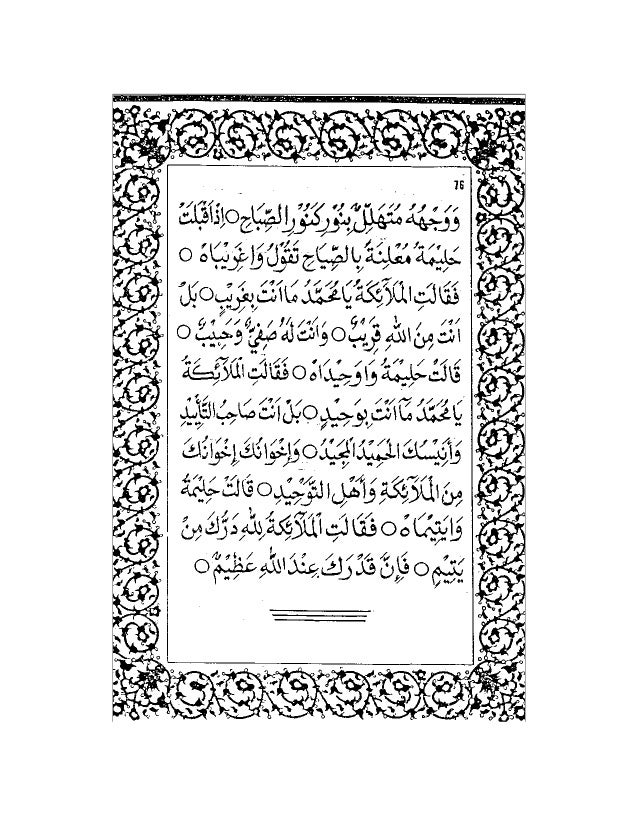 76
وَوَجْهُهُ مُتَهَلِّلٌ بِنُوْرٍ كَنُوْرِ الصَّبَاحِ ○ اِذْ اَقْبَلَتْ
حَلِيْمَةُ مُعْلِنَةً بِالصِّيَاحِ تَقُوْلُ وَاغَرِيْبَاهْ ○
فَقَالَتِ الْمَلَآئِكَةُ يَا مُحَمَّدُ مَا اَنْتَ بِغَرِيْبٍ ○ بَلْ
اَنْتَ مِنَ اللهِ قَرِيْبٌ ○ وَاَنْتَ لَهُ صَفِيٌّ وَحَبِيْبٌ ○
قَالَتْ حَلِيْمَةُ وَاوَحِيْدَاهْ ○ فَقَالَتِ الْمَلَآئِكَةُ
يَا مُحَمَّدُ مَآ اَنْتَ بِوَحِيْدٍ ○ بَلْ اَنْتَ صَاحِبُ التَّأْيِيْدِ
وَأَنِيْسُكَ الْحَمِيْدُ الْمَجِيْدُ ○ وَإِخْوَانُكَ إِخْوَانُكَ
مِنَ الْمَلَآئِكَةِ وَأَهْلِ التَّوْحِيْدِ ○ قَالَتْ حَلِيْمَةُ
وَايَتِيْمَاهْ ○ فَقَالَتِ الْمَلَآئِكَةُ لِلّٰهِ دَرُّكَ مِنْ
يَتِيْمٍ ○ فَإِنَّ قَدْرَكَ عِنْدَ اللهِ عَظِيْمٌ ○